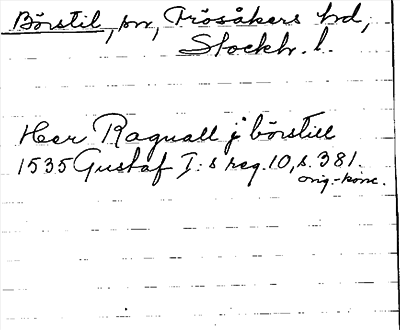 Börstil, sn, Frösåkers hd,
Stockh. l.
Her Raguall j börstill
1535 Gustaf I:s reg. 10, s. 381.
orig.-konc.